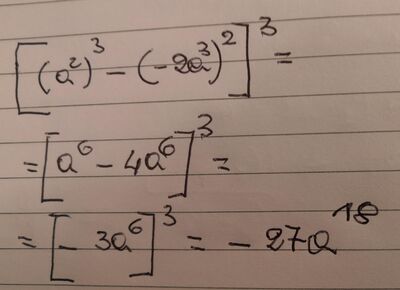 [(a²)³ − (−2a³)²]³ =
= [a⁶ − 4a⁶]³ =
= [− 3a⁶]³ = − 27a¹⁸